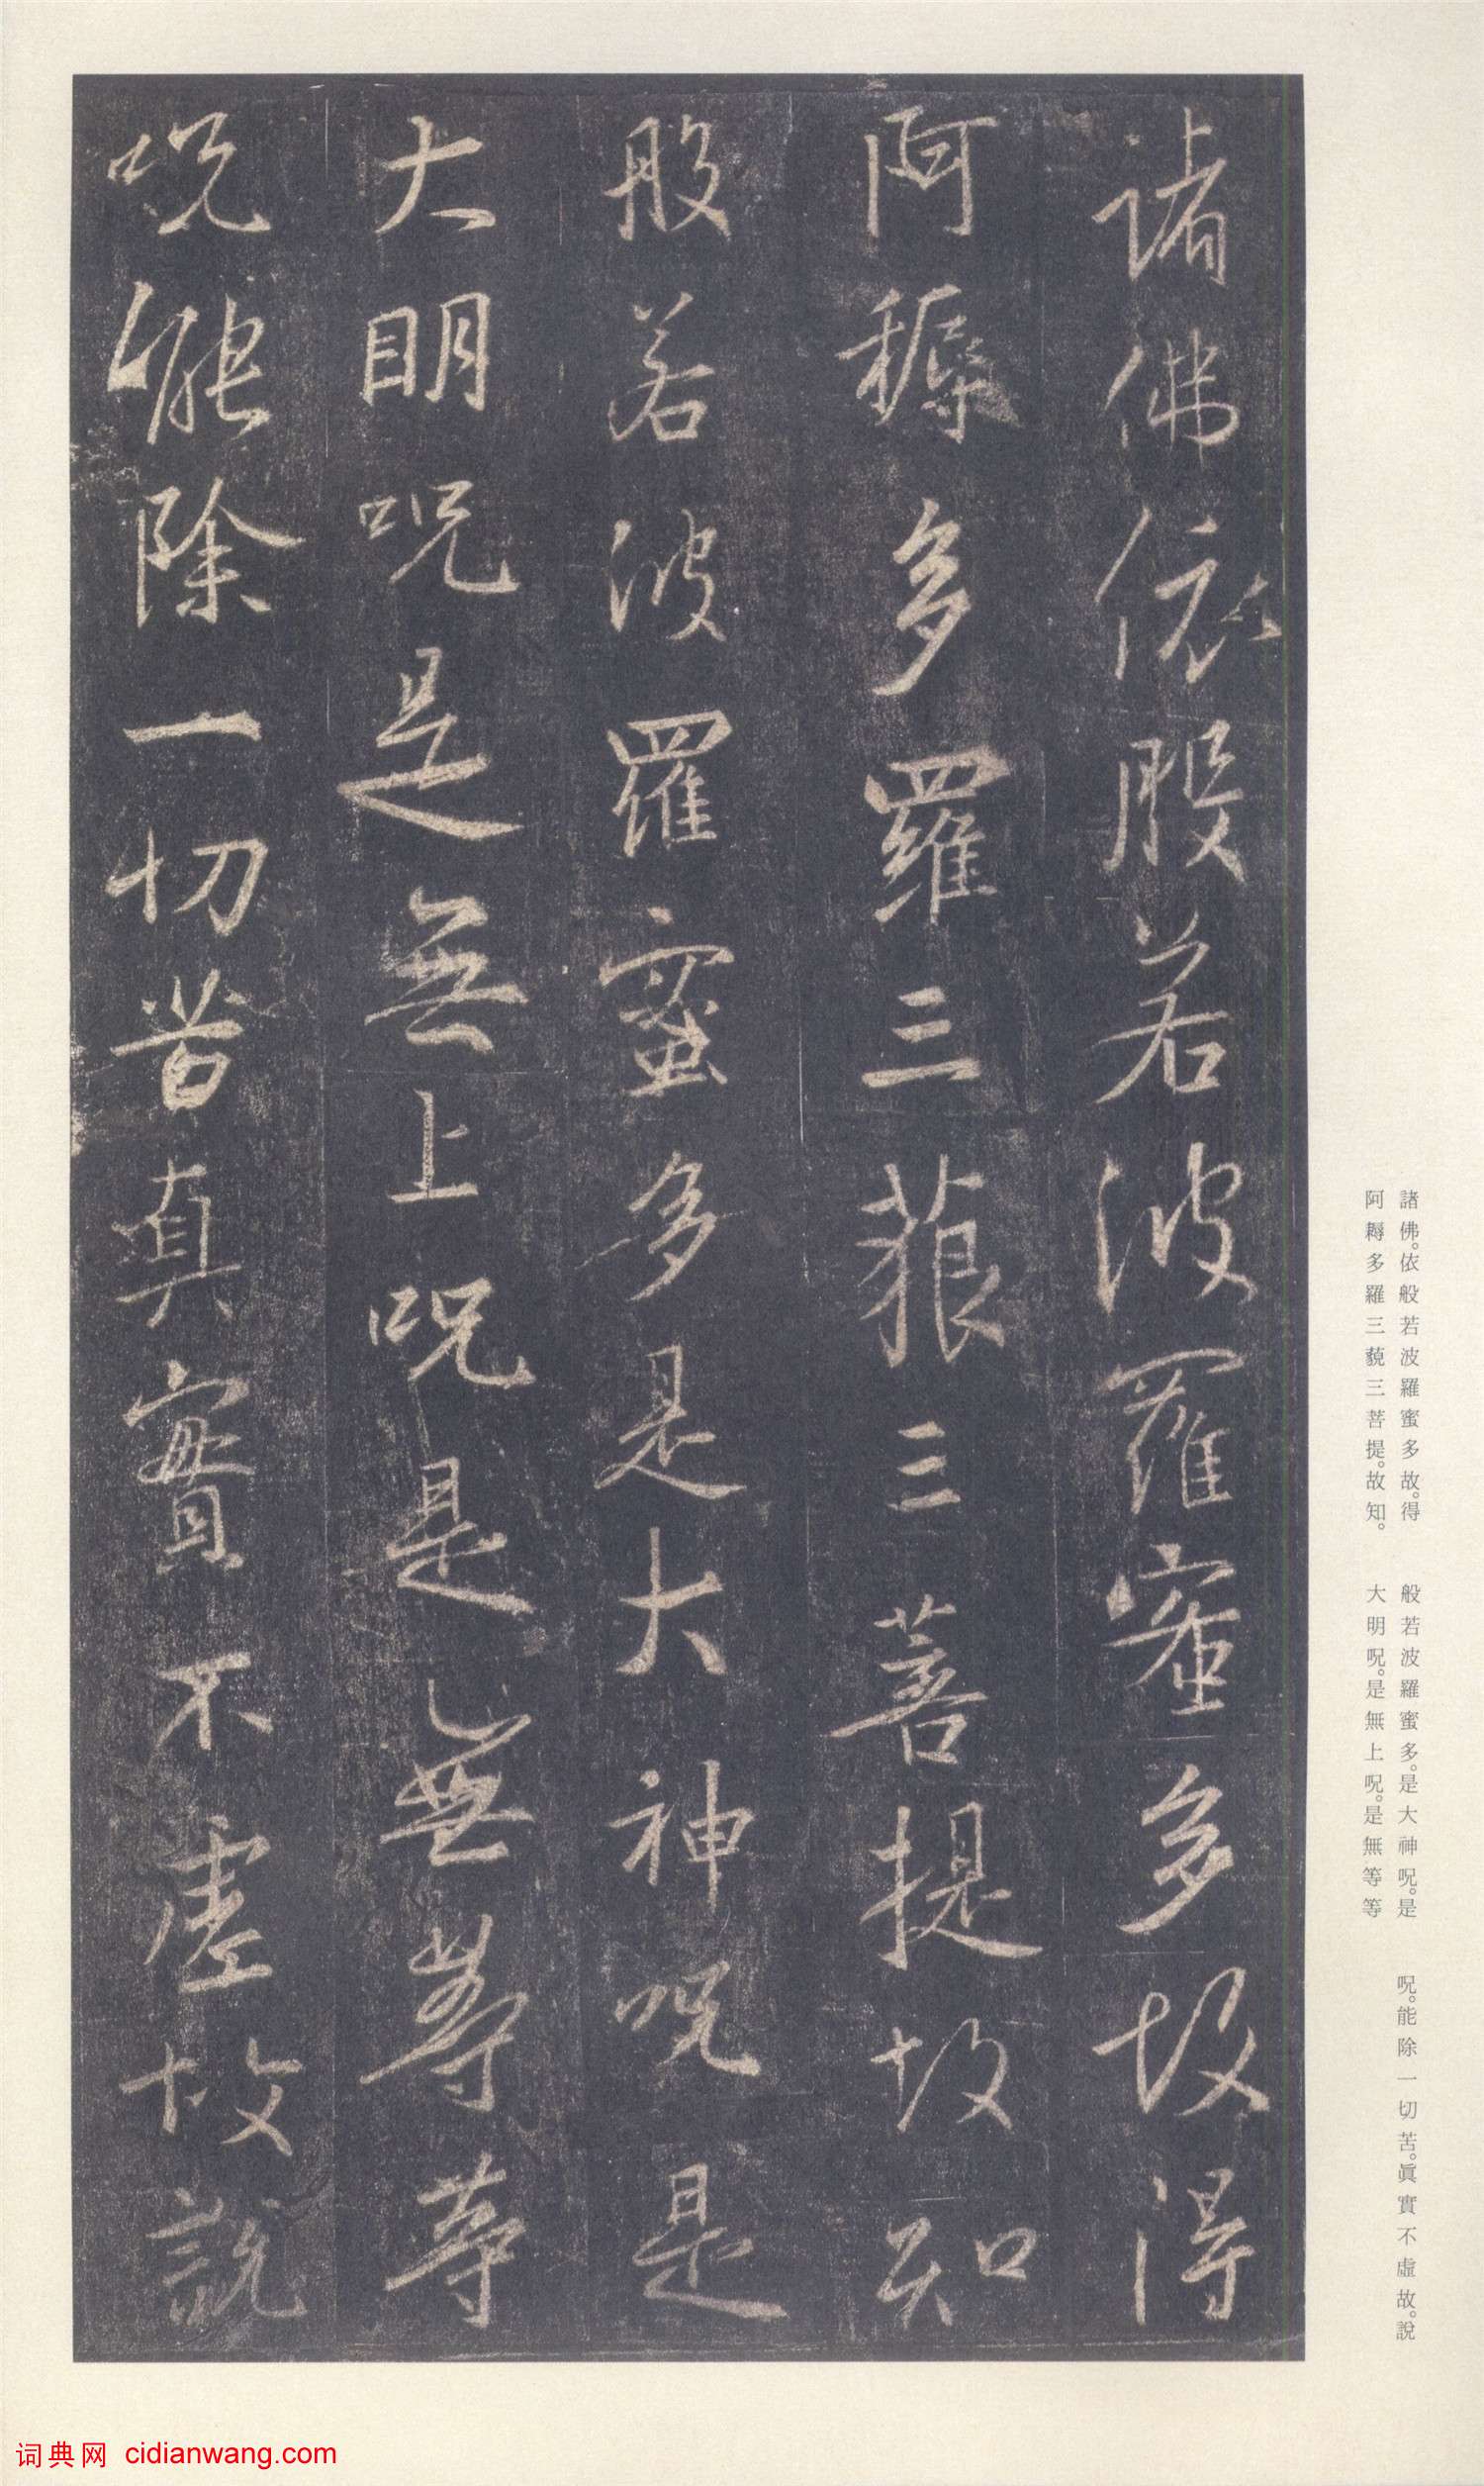 諸佛依般若波羅蜜多故得
阿耨多羅三藐三菩提故知
般若波羅蜜多是大神呪是
大明呪是無上呪是無等等
呪能除一切苦真實不虛故說
諸佛。依般若波羅蜜多故。得
阿耨多羅三藐三菩提。故知。
般若波羅蜜多。是大神呪。是
大明呪。是無上呪。是無等等
呪。能除一切苦。眞實不虛故。說
词典网 cidianwang.com